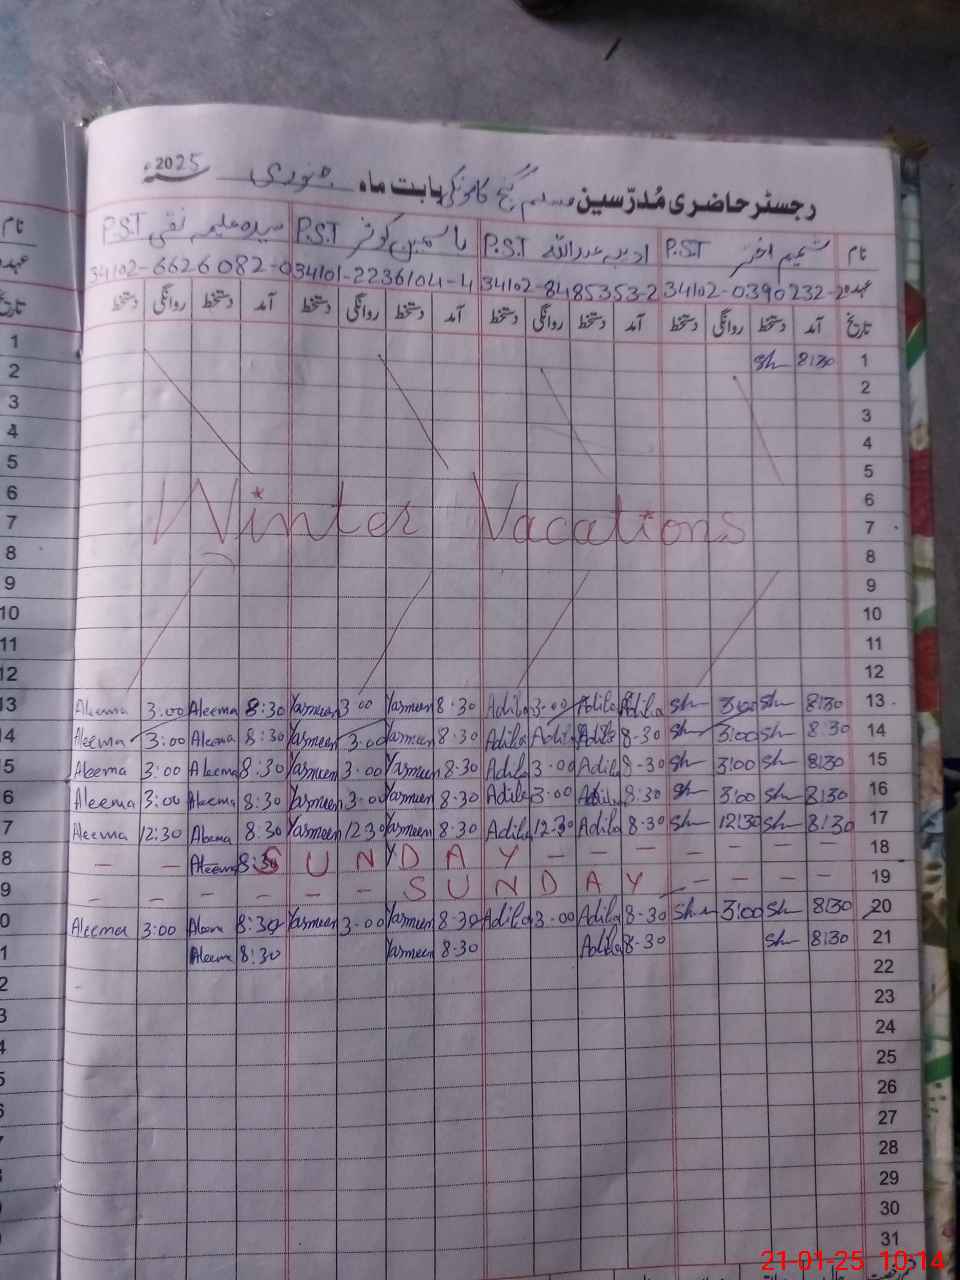 رجسٹر حاضری مُدرّسین مسلم گنج کامونکی بابت ماہ جنوری 2025ء
نام شمیم اختر P.S.T ادیبہ عبداللہ P.S.T یاسمین کوثر P.S.T سیدہ علیمہ نقی P.S.T
عہدہ 34102-0390232-2 34102-8485353-2 34101-2236104-4 34102-6626082-0
تاریخ آمد دستخط روانگی دستخط آمد دستخط روانگی دستخط آمد دستخط روانگی دستخط آمد دستخط روانگی دستخط
1 Sh 8:30 1
2 2
3 3
4 4
5 5
6 6
Winter Vacations
7 7
8 8
9 9
10 10
11 11
12 12
13 Aleema 3:00 Aleema 8:30 Yasmeen 3:00 Yasmeen 8:30 Adila 3:00 Adila Adila Sh 3:00 Sh 8:30 13
14 Aleema 3:00 Aleema 8:30 Yasmeen 3:00 Yasmeen 8:30 Adila Adila Adila 8-30 Sh 3:00 Sh 8:30 14
5 Aleema 3:00 Aleema 8:30 Yasmeen 3:00 Yasmeen 8-30 Adila 3:00 Adila 8-30 Sh 3:00 Sh 8:30 15
6 Aleema 3:00 Aleema 8:30 Yasmeen 3:00 Yasmeen 8-30 Adila 3:00 Adila 8:30 Sh 3:00 Sh 8:30 16
7 Aleema 12:30 Aleema 8:30 Yasmeen 12:30 Yasmeen 8-30 Adila 12-30 Adila 8-30 Sh 12:30 Sh 8:30 17
8 – – Aleema 8:30 SUNDAY – – – – – – – 18
9 – – – – – – SUNDAY – – – – 19
0 Aleema 3:00 Aleema 8:30 Yasmeen 3:00 Yasmeen 8-30 Adila 3:00 Adila 8-30 Sh 3:00 Sh 8:30 20
1 Aleema 8:30 Yasmeen 8-30 Adila 8-30 Sh 8:30 21
2 22
3 23
4 24
5 25
6 26
27
28
29
30
31
21-01-25 10:14